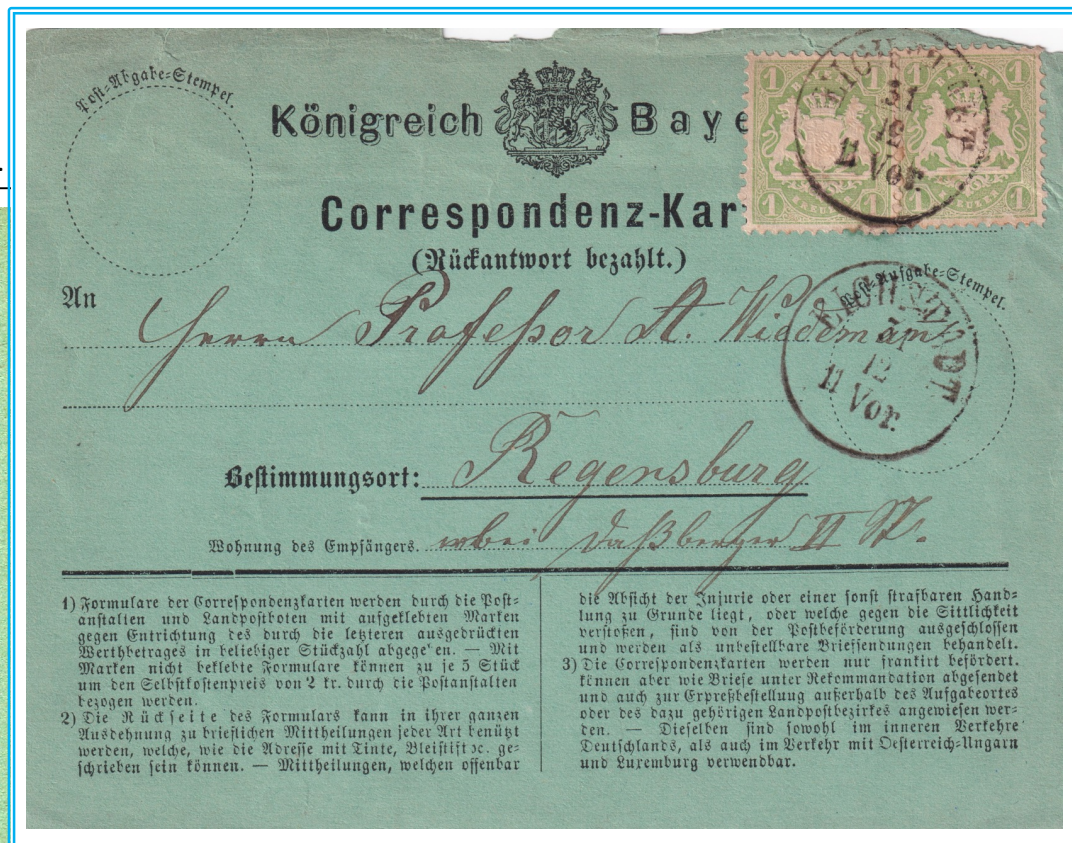 Post-Abgabe-Stempel.
Königreich Baye
1 1 1
EICHSTADT
31
12
11 Vor.
1 1 1 1
KREUZER KREUZER
Correspondenz-Kar
(Rückantwort bezahlt.)
Post-Aufgabe-Stempel.
An Herrn Professor A. Wiedemann
EICHSTADT
31
12
11 Vor.
Bestimmungsort: Regensburg
Wohnung des Empfängers. II St.
1) Formulare der Correspondenzkarten werden durch die Post-
anstalten und Landpostboten mit aufgeklebten Marken
gegen Entrichtung des durch die letzteren ausgedrückten
Werthbetrages in beliebiger Stückzahl abgege'en. — Mit
Marken nicht beklebte Formulare können zu je 5 Stück
um den Selbstkostenpreis von 2 kr. durch die Postanstalten
bezogen werden.
2) Die Rückseite des Formulars kann in ihrer ganzen
Ausdehnung zu brieflichen Mittheilungen jeder Art benützt
werden, welche, wie die Adresse mit Tinte, Bleistift ꝛc. ge-
schrieben sein können. — Mittheilungen, welchen offenbar
die Absicht der Injurie oder einer sonst strafbaren Hand-
lung zu Grunde liegt, oder welche gegen die Sittlichkeit
verstoßen, sind von der Postbeförderung ausgeschlossen
und werden als unbestellbare Briefsendungen behandelt.
3) Die Correspondenzkarten werden nur frankirt befördert.
können aber wie Briefe unter Rekommandation abgesendet
und auch zur Expreßbestellung außerhalb des Aufgabeortes
oder des dazu gehörigen Landpostbezirkes angewiesen wer-
den. — Dieselben sind sowohl im inneren Verkehre
Deutschlands, als auch im Verkehr mit Oesterreich-Ungarn
und Luxemburg verwendbar.